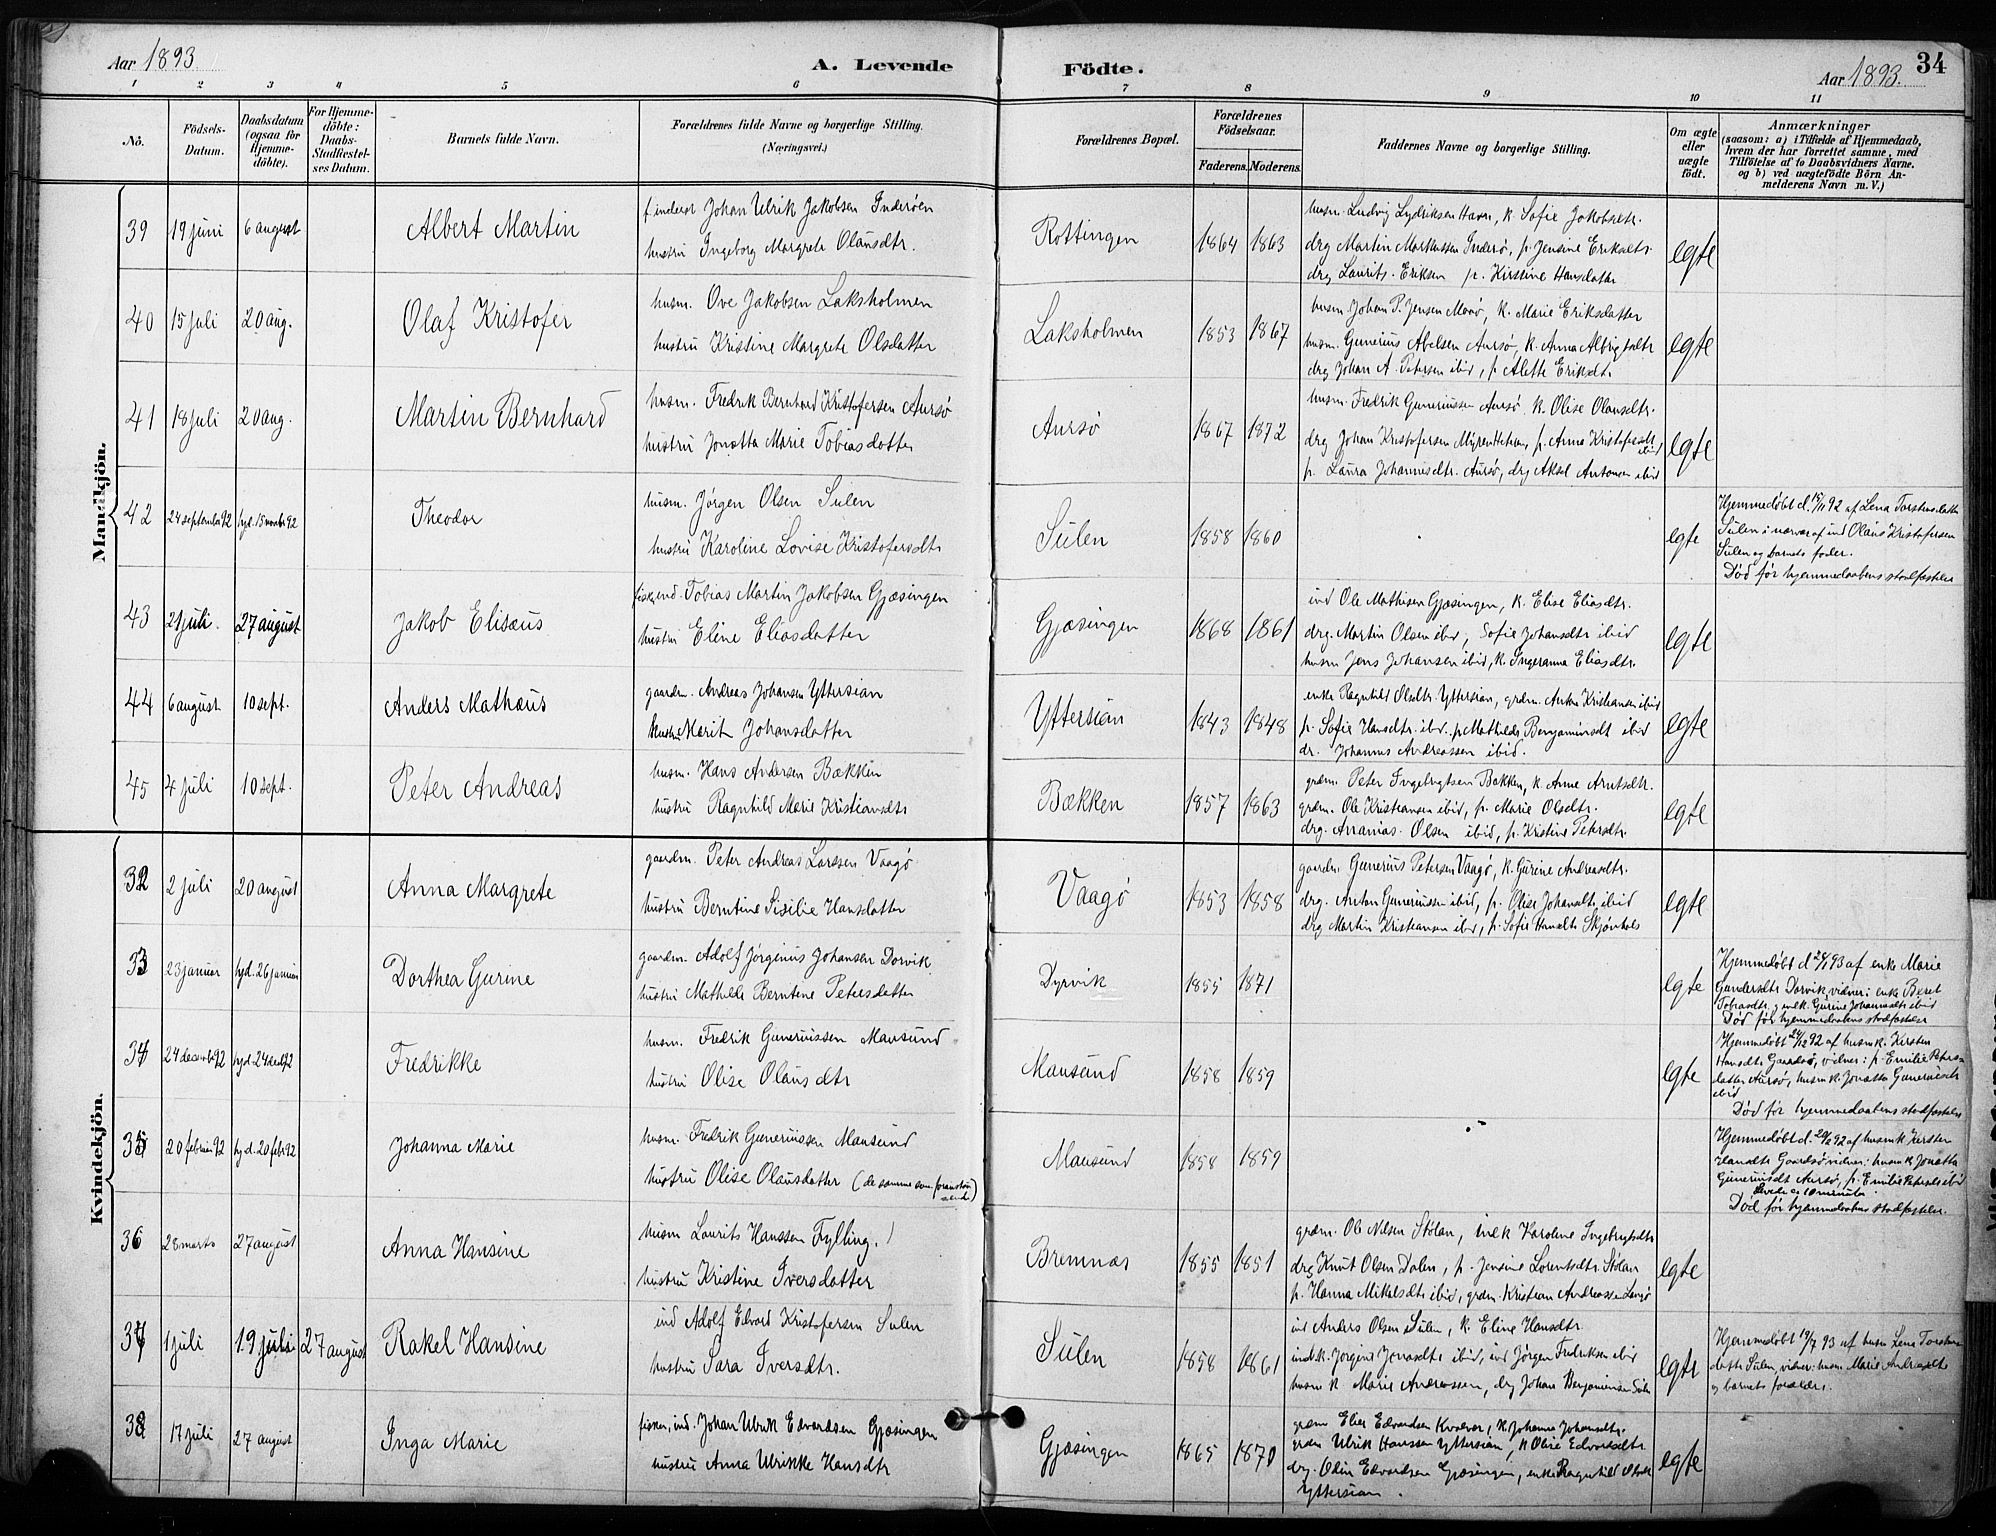 Aar 1893
A. Levende Födte.
Aar 1893.
34
1 2 3 4 5 6 7 8 9 10 11
No.
Födsels-Datum.
Daabsdatum (ogsaa for Hjemmedöbte).
For Hjemmedöbte: Daabs-Stadfæstelses Datum.
Barnets fulde Navn.
Forældrenes fulde Navne og borgerlige Stilling. (Næringsvei.)
Forældrenes Bopæl.
Forældrenes Födselsaar.
Faderens. Moderens.
Faddernes Navne og borgerlige Stilling.
Om ægte eller uægte födt.
Anmærkninger (saasom: a) i Tilfælde af Hjemmedaab, hvem der har forrettet samme, med Tilföielse af to Daabsvidners Navne, og b) ved uægtefödte Börn Anmelderens Navn m. V.)
Mandkjön.
39 19 juni 6 august Albert Martin
Johan Ulrik Jakobsen Inderöen
hustru Ingeborg Margrete Olausdtr.
Rottingen 1864 1863
husm. Ludvig Lydriksen Havn, k. Sofie Jakobsdtr.
drg Martin Markussen Inderø, p. Jensine Eriksdtr.
drg Laurits Eriksen p. Kirstine Hansdatter
egte
40 15 juli 20 aug. Olaf Kristofer
husm. Ove Jakobsen Laksholmen
hustru Kristine Margrete Olsdatter
Laksholmen 1853 1867
husm. Johan P. Jensen Maøø, k. Marie Eriksdatter
husm. Gunerius Abelsen Aursø, k. Anna Albrigtsdtr
drg Johan A. Petersen ibid, p Alette Eriksdtr
egte
41 18 juli 20 aug. Martin Bernhard
husm. Fredrik Bernhard Kristofersen Aursø
hustru Jonetta Marie Tobiasdatter
Aursø 1867 1872
husm. Fredrik Guneriussen Aursø, k. Olise Olausdtr.
drg Johan Kristofersen p. Anna Kristofersdtr ibid
p. Laura Johannesdtr. Aursø, drg Aksel Antonsen ibid
egte
42 24 september 92 hjd. 15 novbr 92 Theodor
husm. Jørgen Olsen Sulen
hustru Karoline Lovise Kristofersdtr
Sulen 1858 1860
egte
Hjemmedøbt d. 15/11 92 af Lena Torstensdatter
Sulen i nærvær af ind Olaus Kristofersen
Sulen og barnets fader.
Død før hjemmedaabens stadfæstelse
43 21 juli. 27 august Jakob Elisæus
fisk, ind. Tobias Martin Jakobsen Gjæsingen
hustru Eline Eliasdatter
Gjæsingen 1868 1861
ind Ole Mathisen Gjæsingen, k. Elise Eliasdtr.
drg. Martin Olsen ibid, Sofie Johansdtr ibid
husm Jens Johansen ibid, k. Ingeranna Eliasdtr.
egte
44 6 august 10 sept. Anders Mathæus
gaardm. Andreas Johansen Yttersian
hustru Marit Johansdatter
Yttersian 1843 1848
enke Ragnhild Olsdtr. Yttersian, grdm. Kristiansen ibid
p. Sofie Hansdtr. ibid. p Mathilde Benjaminsdt ibid
dr. Johannes Andreassen ibid.
egte
45 4 juli 10 sept. Peter Andreas
husm. Hans Andersen Bækken
hustru Ragnhild Marie Kristiansdtr
Bækken 1857 1863
grdm. Peter Ingebrigtsen Bakken, k. Anne Arntsdtr.
grdm. Ole Kristiansen ibid, p. Marie Olsdtr.
drg. Ananias Olsen ibid, p. Kristine Petersdtr.
egte
Kvindekjön.
32 2 juli 20 august Anna Margrete
gaardm. Peter Andreas Larssen Vaagø
hustru Berntine Sisilie Hansdatter
Vaagø 1853 1858
gaardm. Gunerius Petersen Vaagø, k. Gurine Andreasdtr.
drg. Anton Guneriussen ibid, p. Olise Johansdtr ibid
drg Martin Kristiansen ibid, p. Sofie Hansdtr Skjønhals
egte
33 23 januar hjd. 26 januar Dorthea Gurine
gaardm. Adolf Jørginus Johansen Dorvik
hustru Mathilde Berntine Petersdatter
Dyrvik 1855 1871
egte
Hjemmedøbt d 26/1 93 af enke Marie
Gundersdtr Dorvik, vidner: enke Beret
Tobiasdtr, Gurine Johannsdtr ibid
Død før hjemmedaabens stadfæstelse
34 24 decembr 92 hjd. 24 dec 92 Fredrikke
husm. Fredrik Guneriussen Mausund
hustru Olise Olausdtr
Mausund 1858 1859
egte
Hjemmedøbt 24/12 92 af husmk. Kirsten
Hansdtr Gaardsø, vidner: p. Emilie Peters-
datter Aursø, husmk. Jonetta Guneriusdtr
ibid
Død før hjemmedaabens stadfæstelse
35 20 februar 92 hjd. 20 febr 92 Johanna Marie
husm. Fredrik Guneriussen Mausund
hustru Olise Olausdatter (de samme som foranstaaende)
Mausund 1858 1859
Hjemmedøbt d. 20/2 92 af husmk Kirsten
Hansdtr Gaardsø vidner: husmk Jonetta
Guneriusdt Aursø, p. Emilie Petersdtr ibid
levede ca 10 minuter.
Død før hjemmedaabens stadfæstelse.
36 28 marts 27 august Anna Hansine
husm Laurits Hanssen Fylling.
hustru Kristine Iversdatter
Bremnæs 1855 1851
grdm. Ole Nilsen Stølan, indk Karoline Ingebrigtsdtr
drg Knut Olsen Dalen, p. Jensine Lorentsdtr. Stølan
p. Hanna Mikalsdtr ibid, grdm. Kristian Andreassen
egte
37 1 juli 19 juli 27 august Rakel Hansine
ind Adolf Edvard Kristofersen Sulen
hustru Sara Iversdtr.
Sulen 1858 1861
ind Anders Olsen Sulen, k. Eline Hansdtr
indk. Jorgine Jonasdtr ibid, ind Jørgen Fredriksen ibid
husm k Marie Andreassen, drg Johan Benjaminsen Sulen
egte
Hjemmedøbt 19/7 93 af husm Lena Torstens-
datter Sulen, vidner: husm Marie Andreasdtr
og barnets forældre.
38 17 juli 27 august Inga Marie
fisker, ind. Johan Ulrik Edvardsen Gjæsingen
hustru Anna Ulrikke Hansdtr
Gjæsingen 1865 1870
grdm Elias Edvardsen Kvalvær, k. Johanna Johansdtr.
grdm Ulrik Hanssen Yttersian, k Olise Edvardsdtr
drg. Odin Edvardsen Gjæsingen, enke Ragnhild Olsdtr
Yttersian.
egte